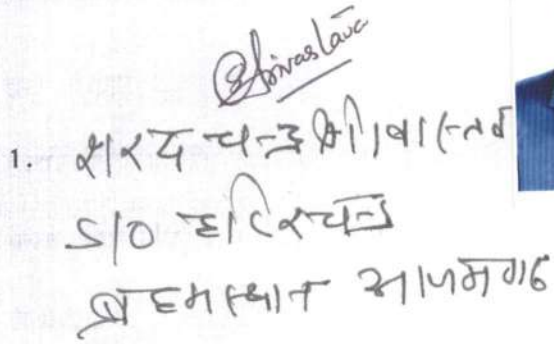 Srivastava
1. शरद चन्द्र श्रीवास्तव
S/O हरिश्चन्द्र
ब्रह्मस्थान आजमगढ